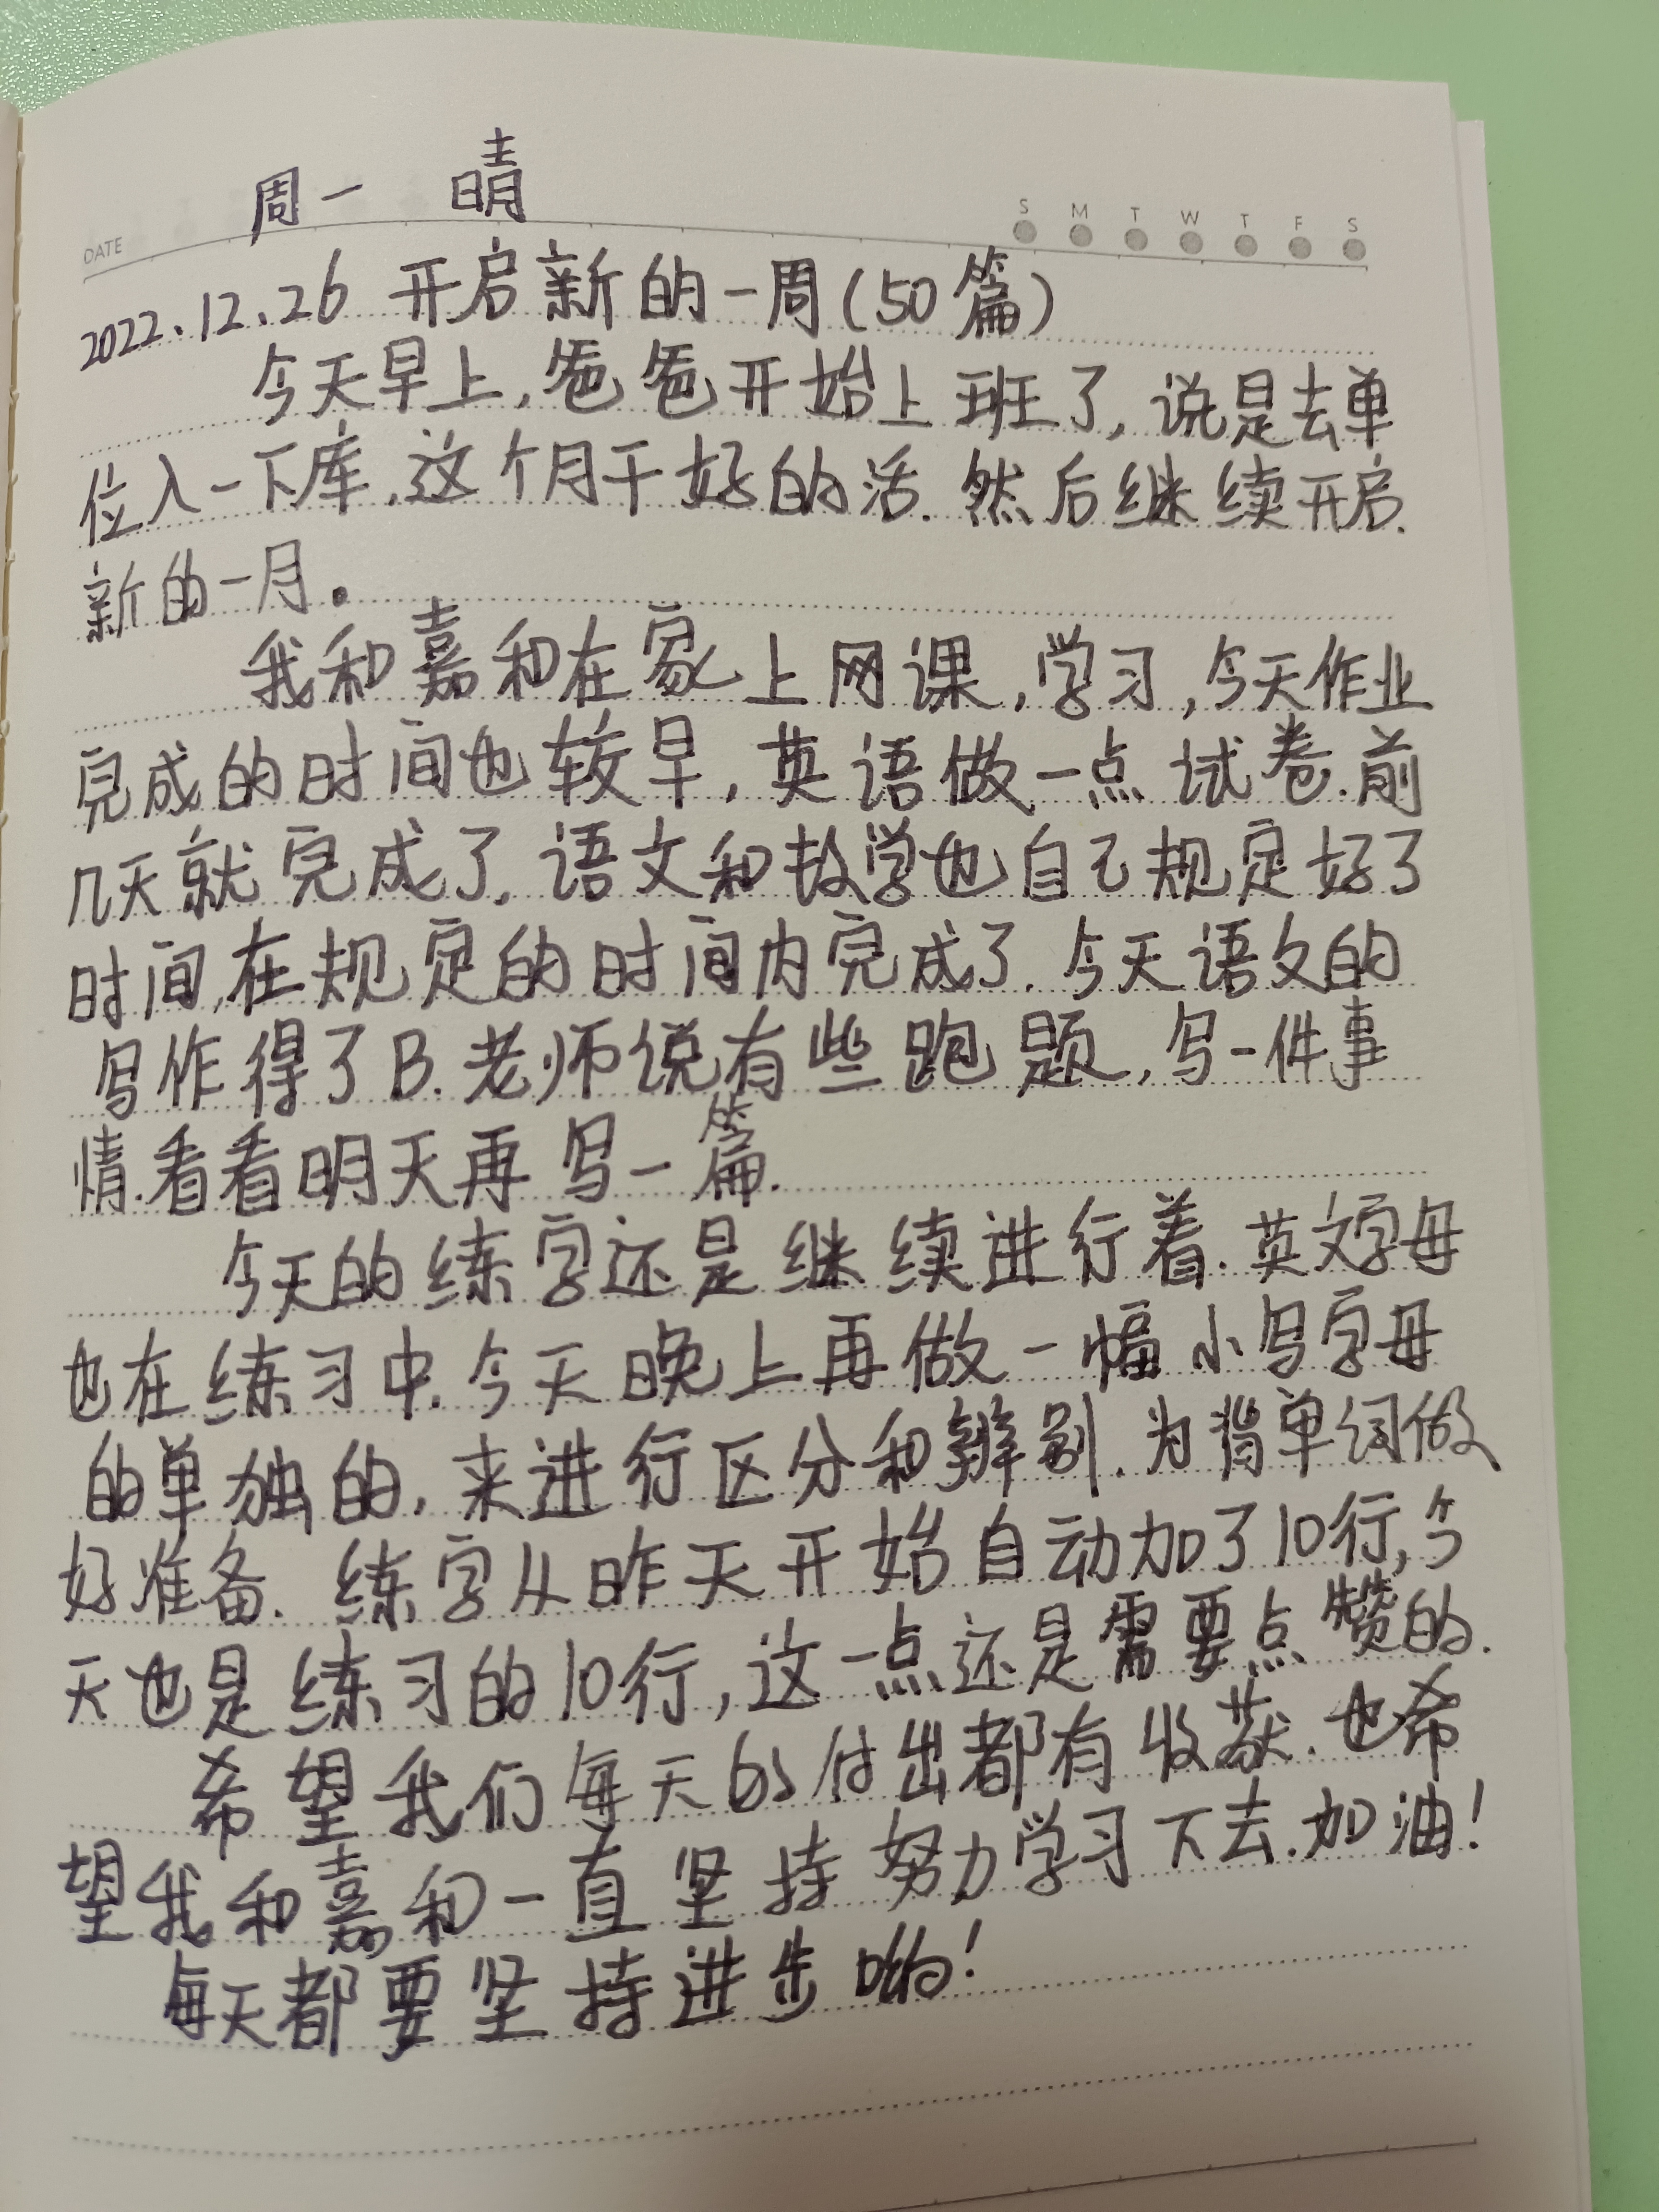 周一 晴
DATE S M T W T F S
2022.12.26 开启新的一周(50篇)
今天早上,爸爸开始上班了,说是去单
位入一下库,这个月干好的活.然后继续开启.
新的一月。
我和嘉和在家上网课,学习,今天作业
完成的时间也较早,英语做一点试卷.前
几天就完成了,语文和数学也自己规定好了
时间,在规定的时间内完成了.今天语文的
写作得了B.老师说有些跑题,写一件事
情.看看明天再写一篇.
今天的练字还是继续进行着.英文字母
也在练习中.今天晚上再做一幅小写字母
的单独的,来进行区分和辨别.为背单词做
好准备.练字从昨天开始自动加了10行,今
天也是练习的10行,这一点还是需要点赞的.
希望我们每天的付出都有收获.也希
望我和嘉和一直坚持努力学习下去.加油!
每天都要坚持进步哟!